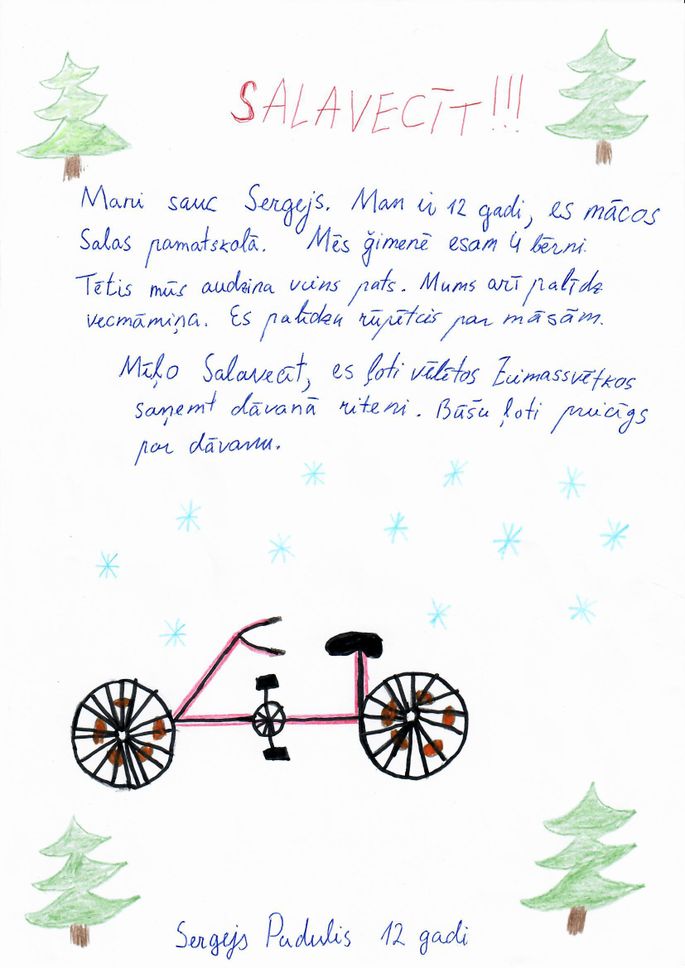 SALAVECĪT!!!
Mani sauc Sergejs. Man ir 12 gadi, es mācos
Salas pamatskolā. Mēs ģimenē esam 4 bērni.
Tētis mūs audzina viens pats. Mums arī palīdz
vecmāmiņa. Es palīdzu rūpēties par māsām.
Mīļo Salavecīt, es ļoti vēlētos Ziemassvētkos
saņemt dāvanā riteni. Būšu ļoti priecīgs
par dāvanu.
Sergejs Padulis 12 gadi